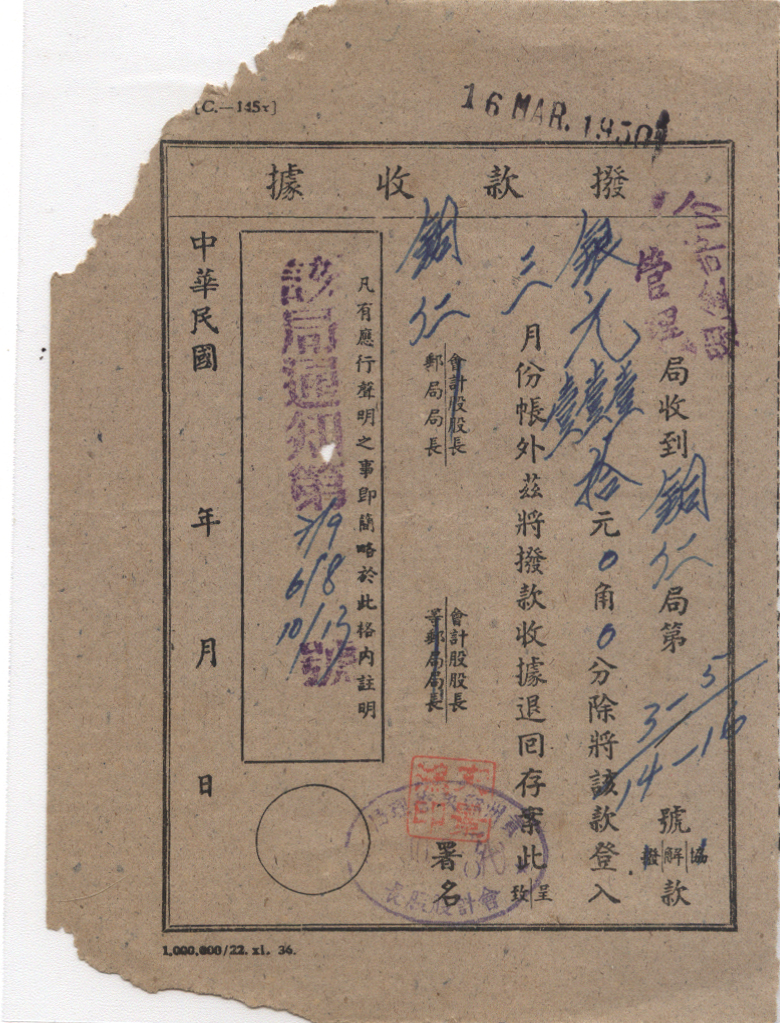 [C.—145x]
16 MAR. 1950
撥款收據
管理
局收到銅仁局第3-5 14-16號協解撥款
銀元壹壹壹拾元0角0分除將該款登入
三月份帳外茲將撥款收據退回存案此呈致
銅仁
會計股股長
郵局局長
會計股股長
等郵局局長
署名
凡有應行聲明之事即簡略於此格內註明
該局通知第7/9 6/8 10/13號
中華民國 年 月 日
會計股股長
1,000,000/22. xi. 36.